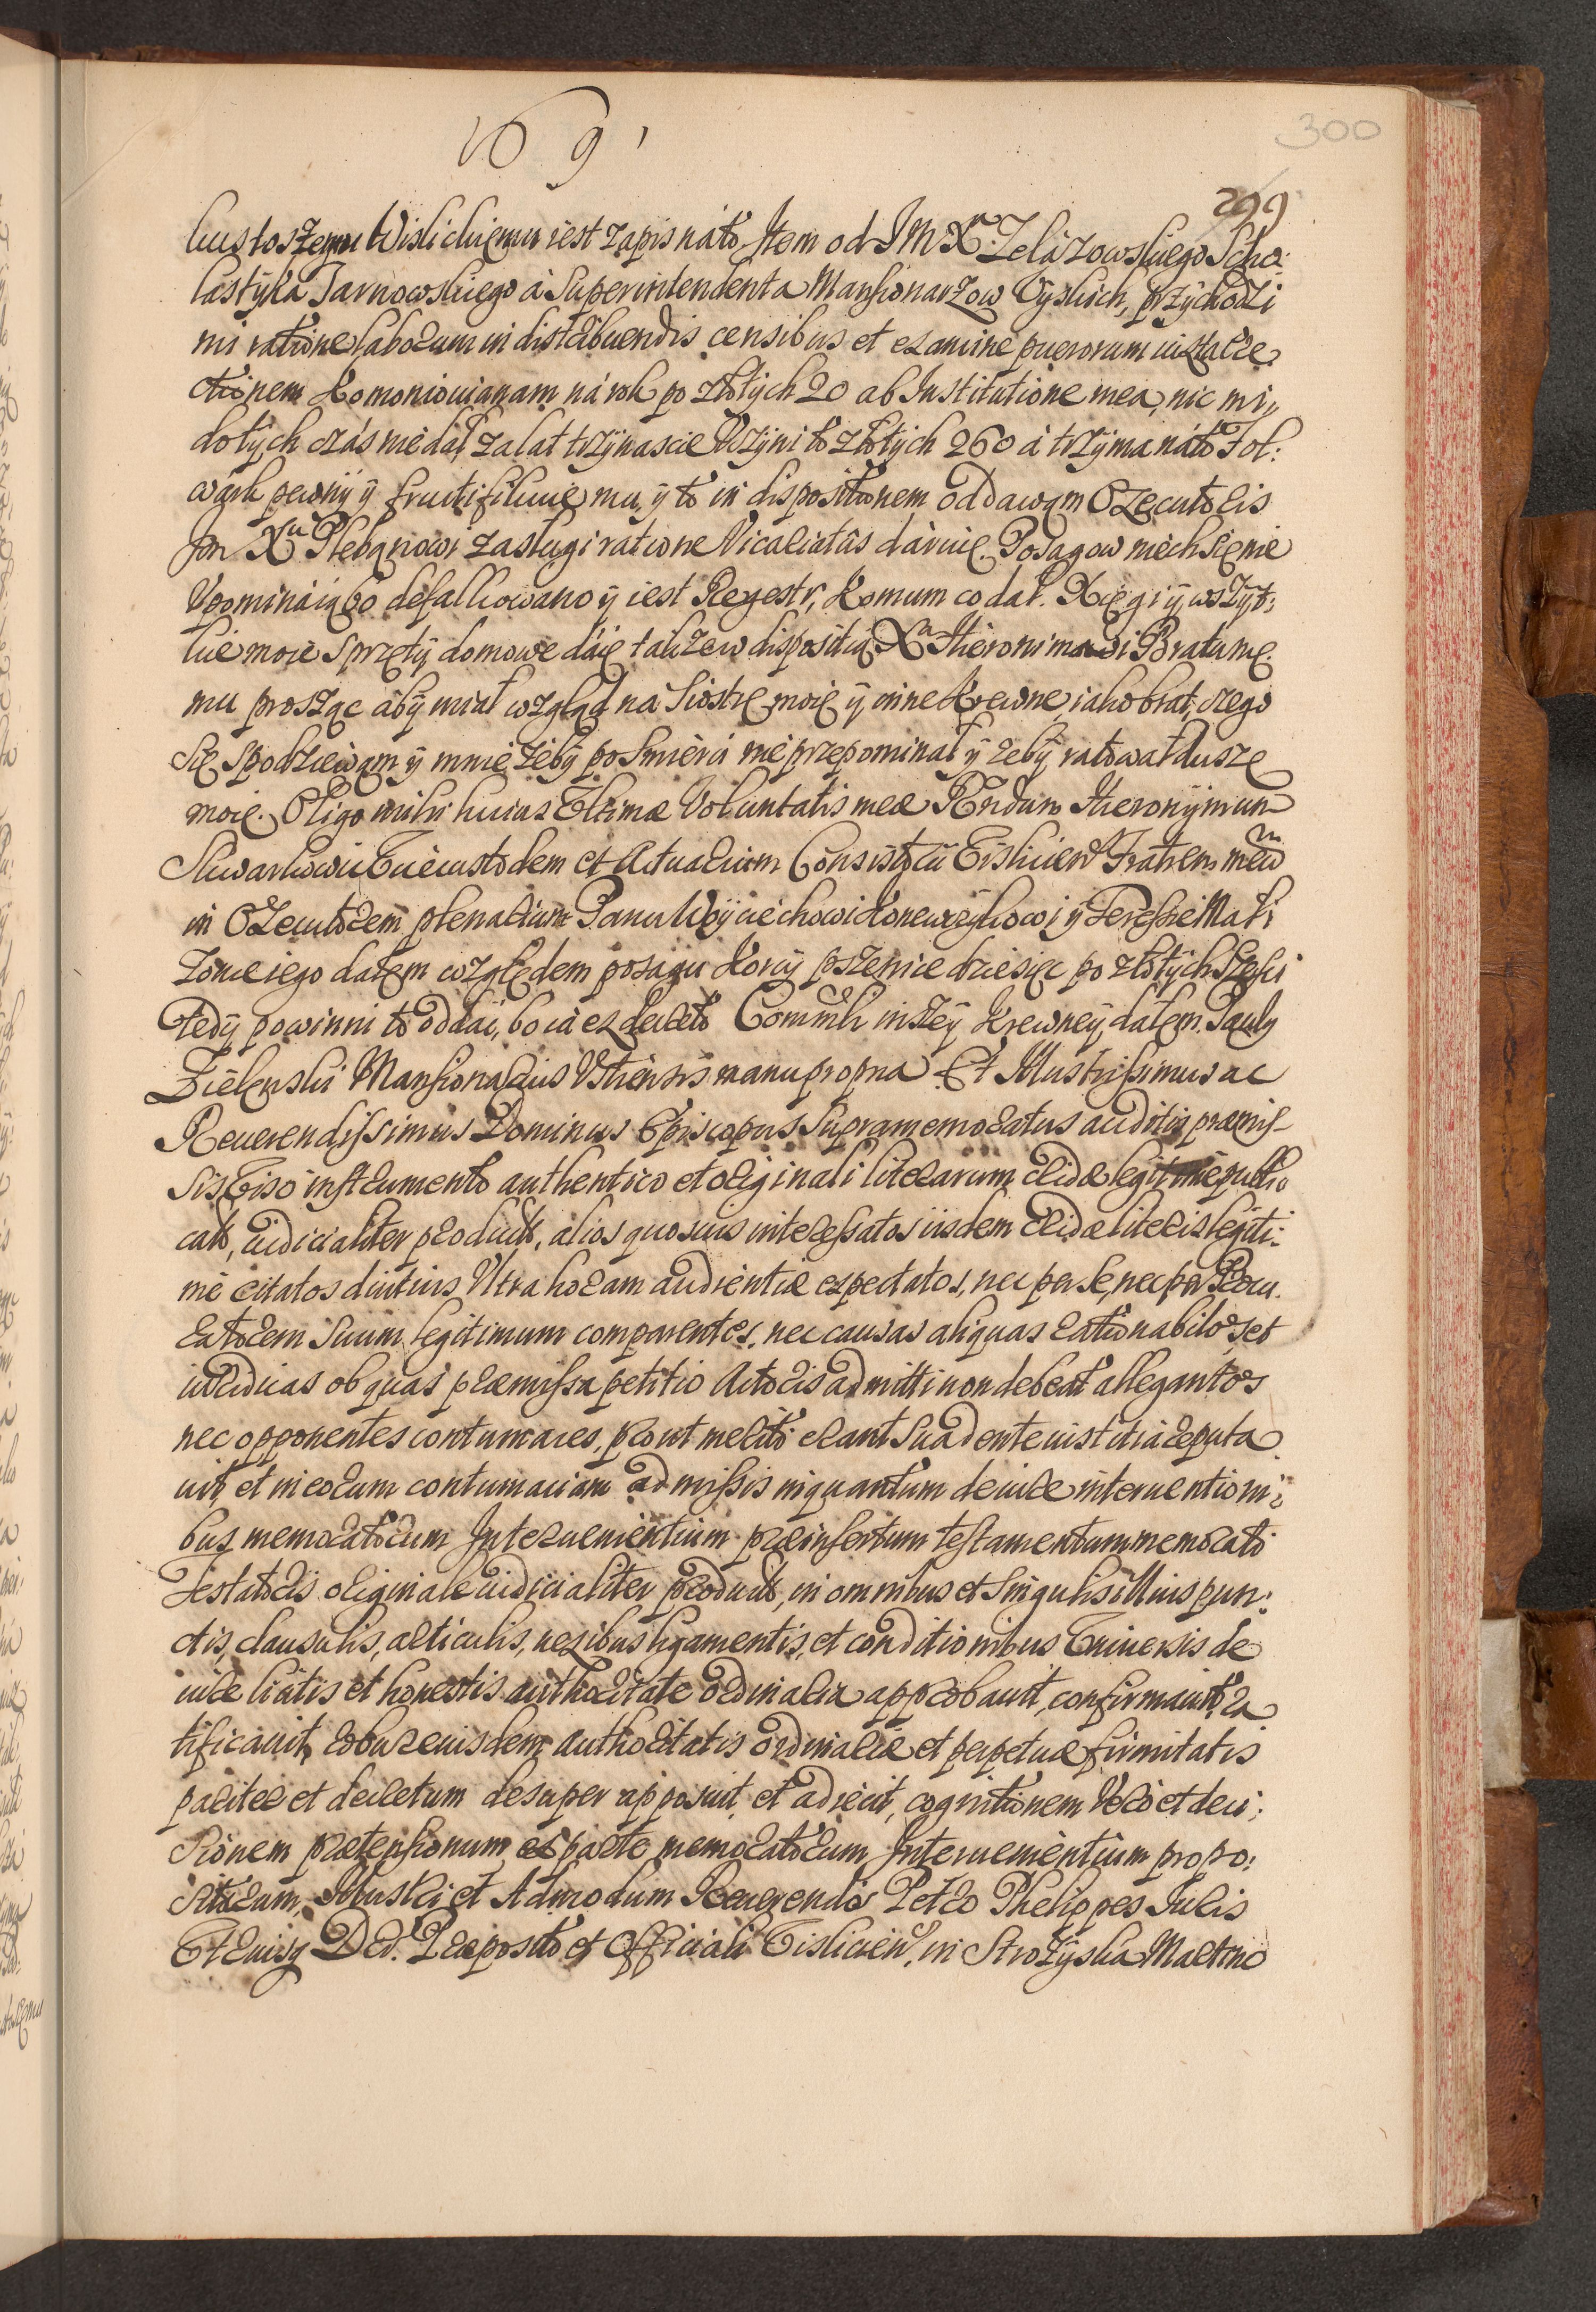 1691
300
299
kustoszemu Wislickiemu iest zapis náto. Item od IM Xa Zelazowskiego Scho:
lastyka Tarnowskiego á Superintendenta Mansionarzow Vyskich, przychodzi
mi ratione laborum in distribuendis censibus et examine puerorum iuxta ere
ctionem Komoniovianam ná rok po złotych 20 ab Institutione mea, nic mi
dotych czás nie dał, za lat trzynascie Vczyni to złotych 260 á trzyma náto Fol:
wark pewny ÿ fructifikuie mu, ÿ to in dispositionem oddawam Executoris
Im Xu Plebanowi zasługi ratione Vicariatûs dáruię. Posagow niech się nie
Vpomináią bo defalkowano ÿ iest Regestr, Komum co dał. Xięgi ÿ wszyt:
kie moie Sprzęty domowe dáię takze w disposition Xu Hieronimowi Bratu me
mu prosząc áby miał wzgląd na Siostrę moię ÿ inne Krewne, iako brat, czego
się Spodziewam ÿ mnie zeby po Smierci nie przepominał ÿ zeby ratował dusze
moię. Eligo mihi huius Vltimæ Voluntatis meæ Rndum Hieronymum
Skwarkowic Vicecustodem et Actuarium Consistorii Vislicien Fratrem meũ
in Executorem plenarium Panu Woyciechowi Konewczykowi ÿ Teressie Mał
zonce iego dałem względem posagu Korcy pszenice dziesięc po złotych szesci
tedy powinni to oddáć, bo iá ex decreto Commis inszey Krewney dałem. Pauly
Zielenski Mansionarius Vstiensis manu propria Et Illustrissimus ac
Reuerendissimus Dominus Episcopus Supramemoratus auditis præmis-
sis Viso instrumento authentico et originali literarum Cridæ legitimè publi
cato, iudicialiter producto, alios quosuis interessatos iisdem Cridæ literis legiti:
mè citatos diutius Vltra horam audientiæ expectatos, nec per se, nec per Procu
ratorem suum legitimum comparentes, nec causas aliquas rationabiles et
iuridicas ob quas præmissa petitio Actoris admitti non debeat allegantes
nec opponentes contumaces, prout meliti erant Suadente iustitia reputa
uit, et in eorum contumaciam admissis inquantum de iure interuentioni:
bus memoratorum Interuenientium præinsertum testamentum memorati
Testatoris originale iudicialiter productum, in omnibus et singulis illius pun:
ctis, clausulis, articulis, nexibus ligamentis, et conditionibus Vniuersis de
iure licitis et honestis authoritate ordinaria approbauit, confirmauit, ra
tificauit, robur eiusdem authoritatis ordinariæ et perpetuæ firmitatis
pariter et decretum desuper apposuit, et adiecit, cognitionem Vero et deci:
sionem prætensionum ex parte memoratorum Interuenientium propo:
sitarum, Illustri et Admodum Reuerendo Petro Phelippes Iuris
Vtriusq Dri. Præposito et Officiali Vislicien, in Strozyska Martino